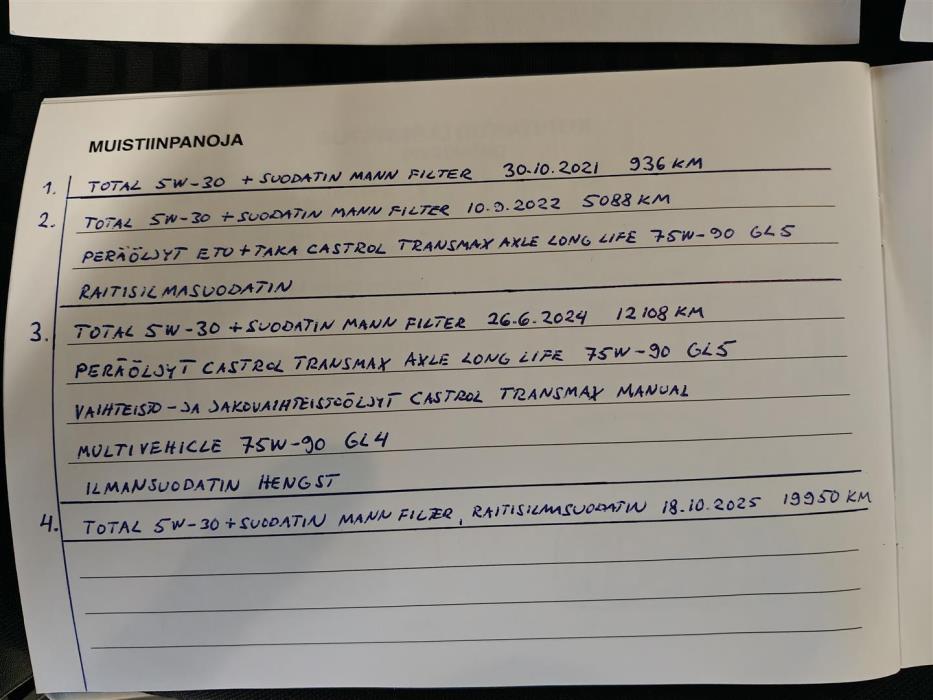 MUISTIINPANOJA
1. TOTAL 5W-30 + SUODATIN MANN FILTER 30.10.2021 936 KM
2. TOTAL 5W-30 + SUODATIN MANN FILTER 10.9.2022 5088 KM
PERÄÖLJYT ETU + TAKA CASTROL TRANSMAX AXLE LONG LIFE 75W-90 GL5
RAITISILMASUODATIN
3. TOTAL 5W-30 + SUODATIN MANN FILTER 26.6.2024 12108 KM
PERÄÖLJYT CASTROL TRANSMAX AXLE LONG LIFE 75W-90 GL5
VAIHTEISTO-JA JAKOVAIHTEISTOÖLJYT CASTROL TRANSMAX MANUAL
MULTIVEHICLE 75W-90 GL4
ILMANSUODATIN HENGST
4. TOTAL 5W-30 + SUODATIN MANN FILTER, RAITISILMASUODATIN 18.10.2025 19950 KM